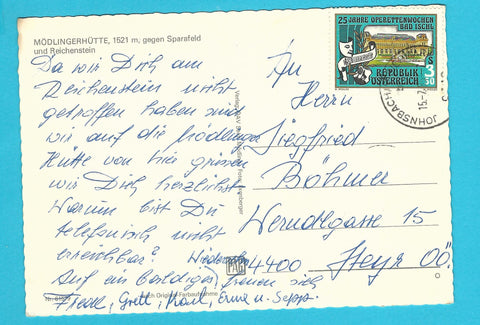 MÖDLINGERHÜTTE, 1521 m, gegen Sparafeld
und Reichenstein
Da wir Dich am
Reichenstein nicht
getroffen haben sind
wir auf die Mödlinger
Hütte von hier grüssen
wir Dich herzlichst
Warum bist Du
telefonisch nicht
erreichbar?
Auf ein baldiges Wiedersehen freuen sich
Friedl, Gretl, Karl, Erna u. Sepp.
25 JAHRE OPERETTENWOCHEN
BAD ISCHL
REPUBLIK
ÖSTERREICH
S 3 30
JOHNSBACH
An
Herrn
Siegfried
Böhmer
Werndlgasse 15
4400 Steyr OÖ.
PAG